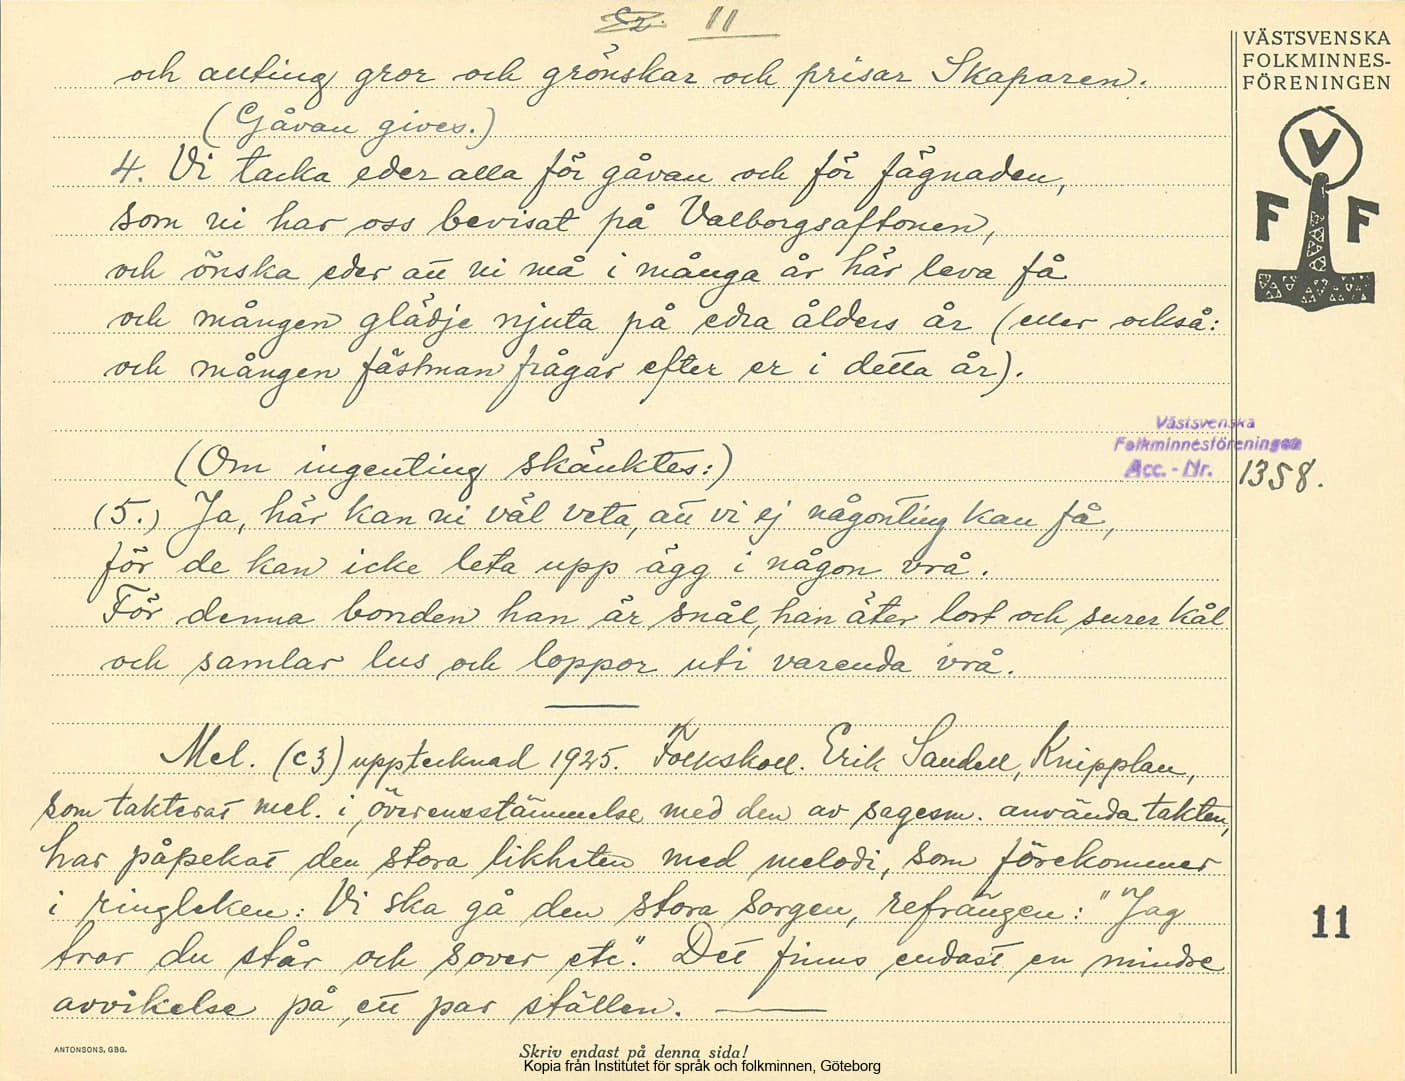 11
och allting gror och grönskar och prisar Skaparen.
(Gåvan gives.)
4. Vi tacka eder alla för gåvan och för fägnaden,
som ni har oss bevisat på Valborgsaftonen,
och önska eder att ni må i många år här leva få
och mången glädje njuta på edra ålders år (eller också:
och mången fästman frågar efter er i detta år).
(Om ingenting skänktes:)
(5.) Ja, här kan ni väl veta, att vi ej någonting kan få,
för de kan icke leta upp ägg i någon vrå.
För denna bonden han är snål, han äter lort och surer kål
och samlar lus och loppor uti varenda vrå.
Mel. (c3) upptecknad 1925. Folkskoll. Erik Sandell, Knipplan,
som takterat mel. i överensstämmelse med den av sagesm. använda takten,
har påpekat den stora likheten med melodi, som förekommer
i ringleken: Vi ska gå den stora sorgen, refrängen: "Jag
tror du står och sover etc". Det finns endast en mindre
avvikelse på ett par ställen.
VÄSTSVENSKA
FOLKMINNES-
FÖRENINGEN
V
F F
Västsvenska
Folkminnesföreningen
Acc.-Nr. 1358.
11
ANTONSONS, GBG.
Skriv endast på denna sida!
Kopia från Institutet för språk och folkminnen, Göteborg